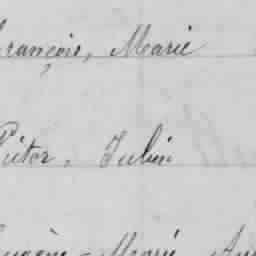 François, Marie
Victor, Julien
Eugène - Marie, Au